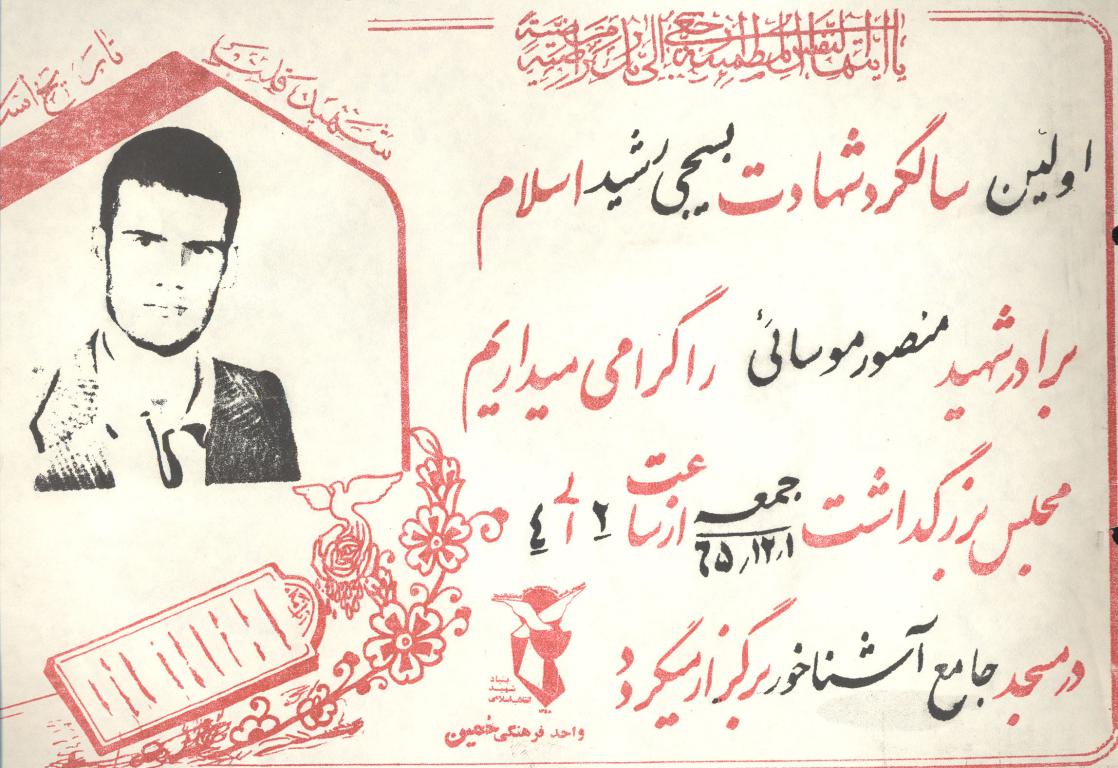 یا ایتها النفس المطمئنة ارجعی الی ربک راضیة مرضیة
شهید قلب تاریخ است
اولین سالگرد شهادت بسیجی رشید اسلام
برادر شهید منصور موسائی را گرامی میداریم
مجلس بزرگداشت جمعه ۶۵/۱۲/۱ از ساعت ۲ الی ٤
در مسجد جامع آشناخور برگزار میگردد
بنیاد
شهید
انقلاب اسلامی
واحد فرهنگی خمین